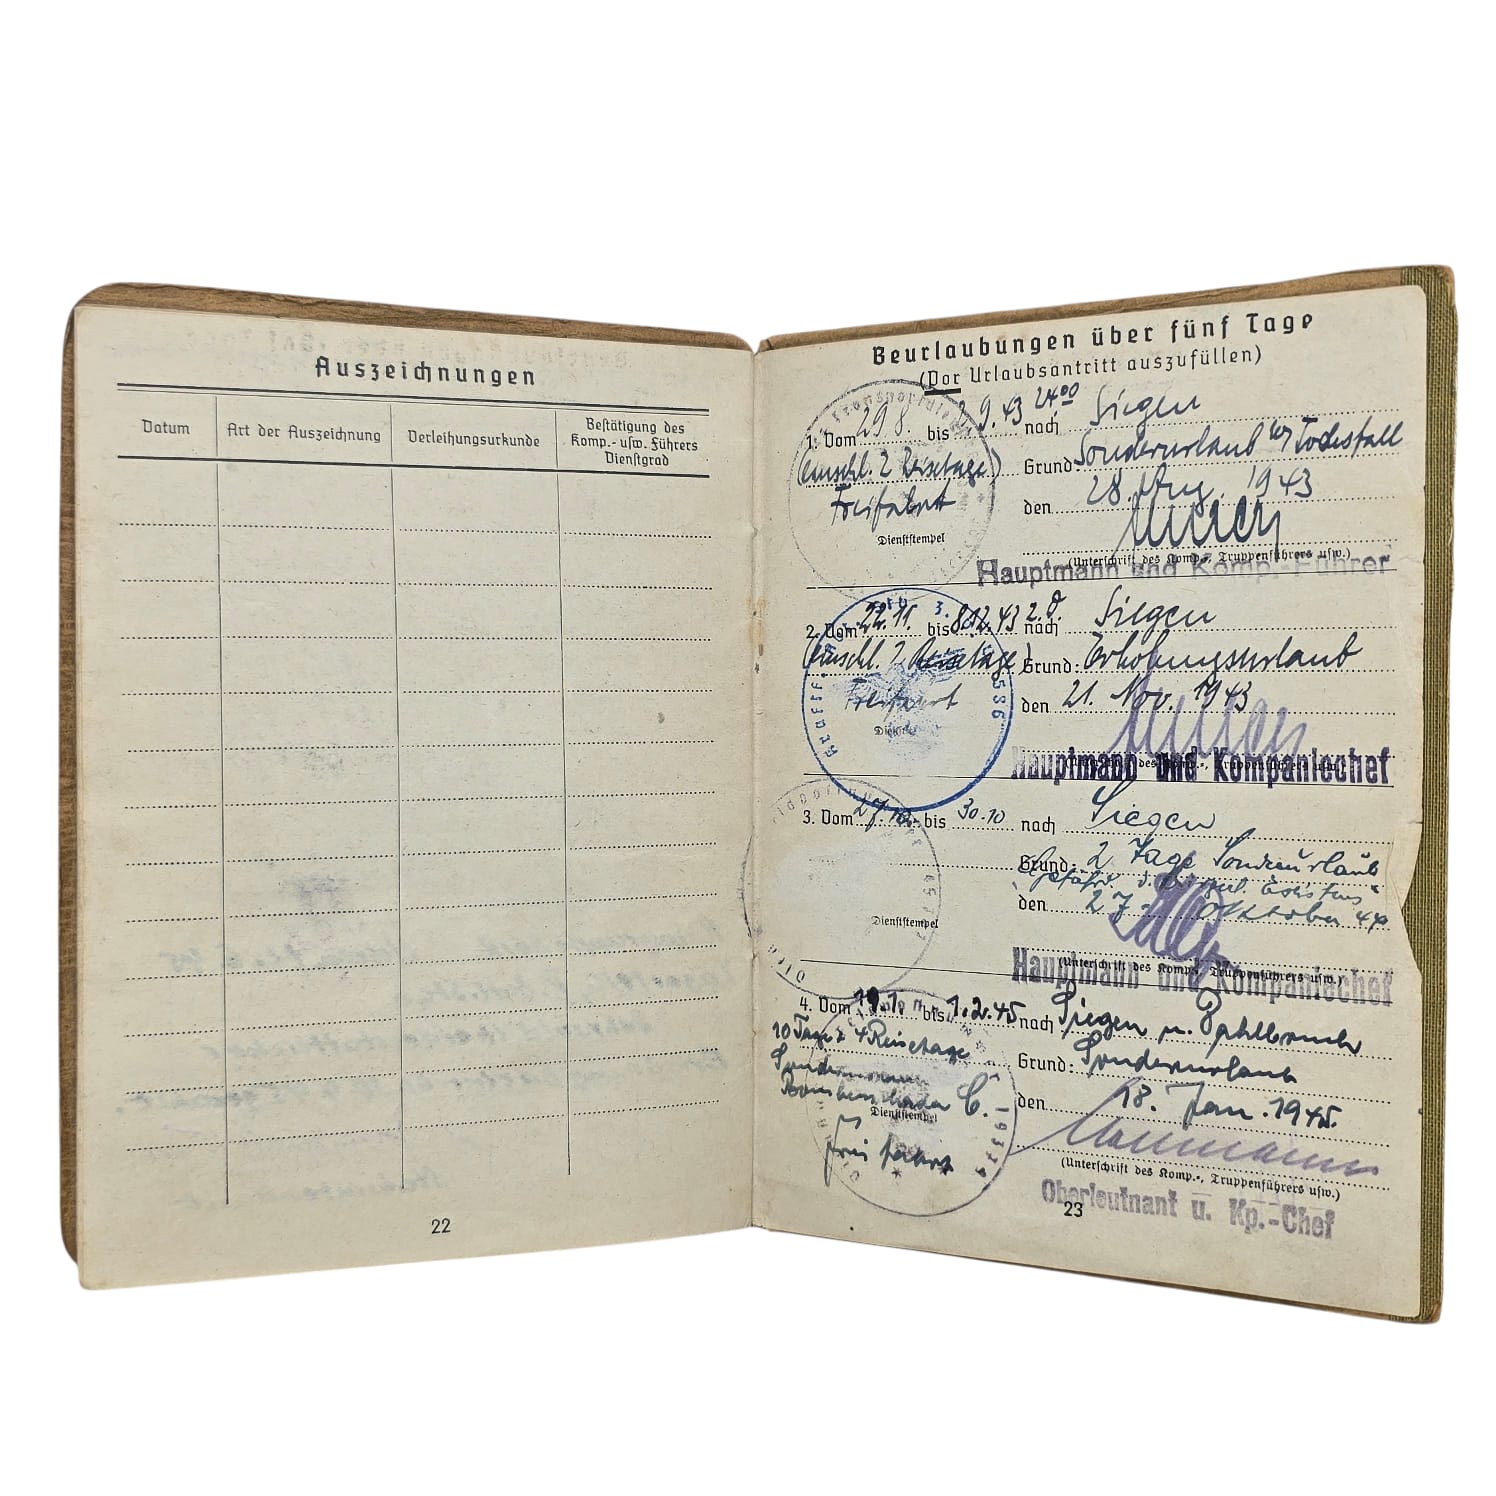 Auszeichnungen
Datum
Art der Auszeichnung
Verleihungsurkunde
Bestätigung des
Komp.- usw. Führers
Dienstgrad
22
Beurlaubungen über fünf Tage
(Vor Urlaubsantritt auszufüllen)
1. Vom 29.8. bis 9.9.43 24⁰⁰ nach Siegen
(einschl. 2 Reisetage) Grund Sonderurlaub Todesfall
Freifahrt den 28. Aug. 1943
Dienststempel
(Unterschrift des Komp.-, Truppenführers usw.)
Hauptmann und Komp.-Führer
2. Vom 22.11. bis 8.12.43 nach Siegen
(einschl. 2 Reisetage) Grund: Erholungsurlaub
Freifahrt den 21. Nov. 1943
Hauptmann und Kompaniechef
3. Vom 27.10. bis 30.10 nach Siegen
Grund: 2 Tage Sonderurlaub
den 27. Oktober 44
Dienststempel
(Unterschrift des Komp.-, Truppenführers usw.)
Hauptmann und Kompaniechef
4. Vom 19.1. bis 1.2.45 nach Siegen u.
10 Tage 4 Reisetage Grund: Sonderurlaub
Bombenschaden C. den 18. Jan. 1945.
Dienststempel
Frei fahrt
(Unterschrift des Komp.-, Truppenführers usw.)
Oberleutnant u. Kp.-Chef
23